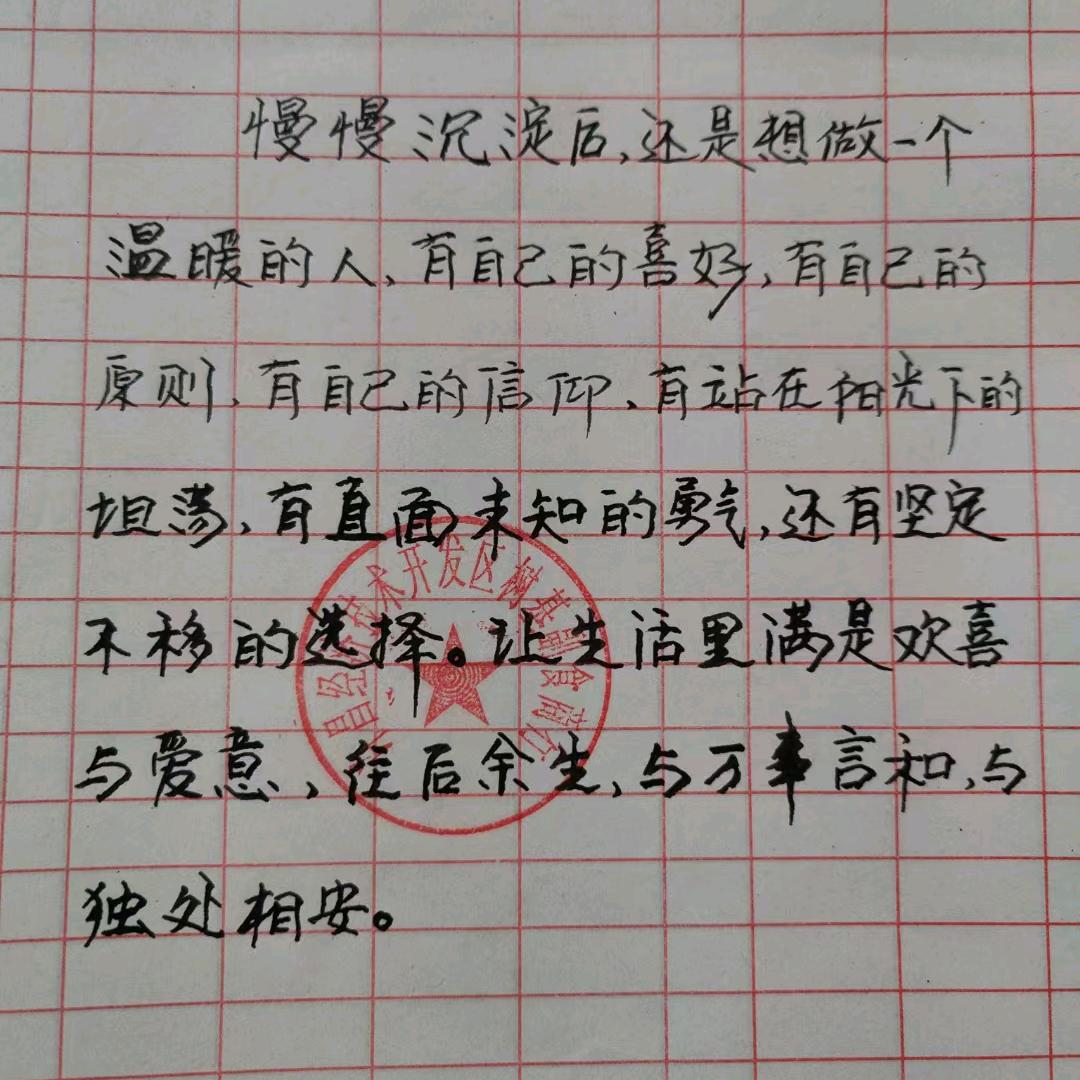 慢慢沉淀后,还是想做一个
温暖的人,有自己的喜好,有自己的
原则,有自己的信仰,有站在阳光下的
坦荡,有直面未知的勇气,还有坚定
不移的选择。让生活里满是欢喜
与爱意,往后余生,与万事言和,与
独处相安。
昌经技术开发区树基副食商行